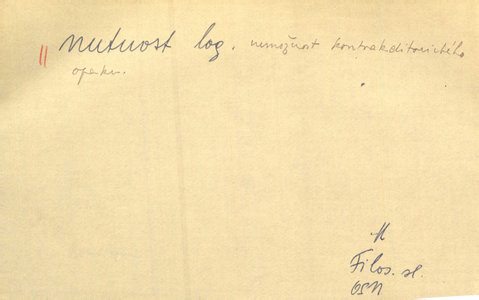 || nutnost log. nemožnost kontradiktorického
opaku.
Filos. sl.
OSN